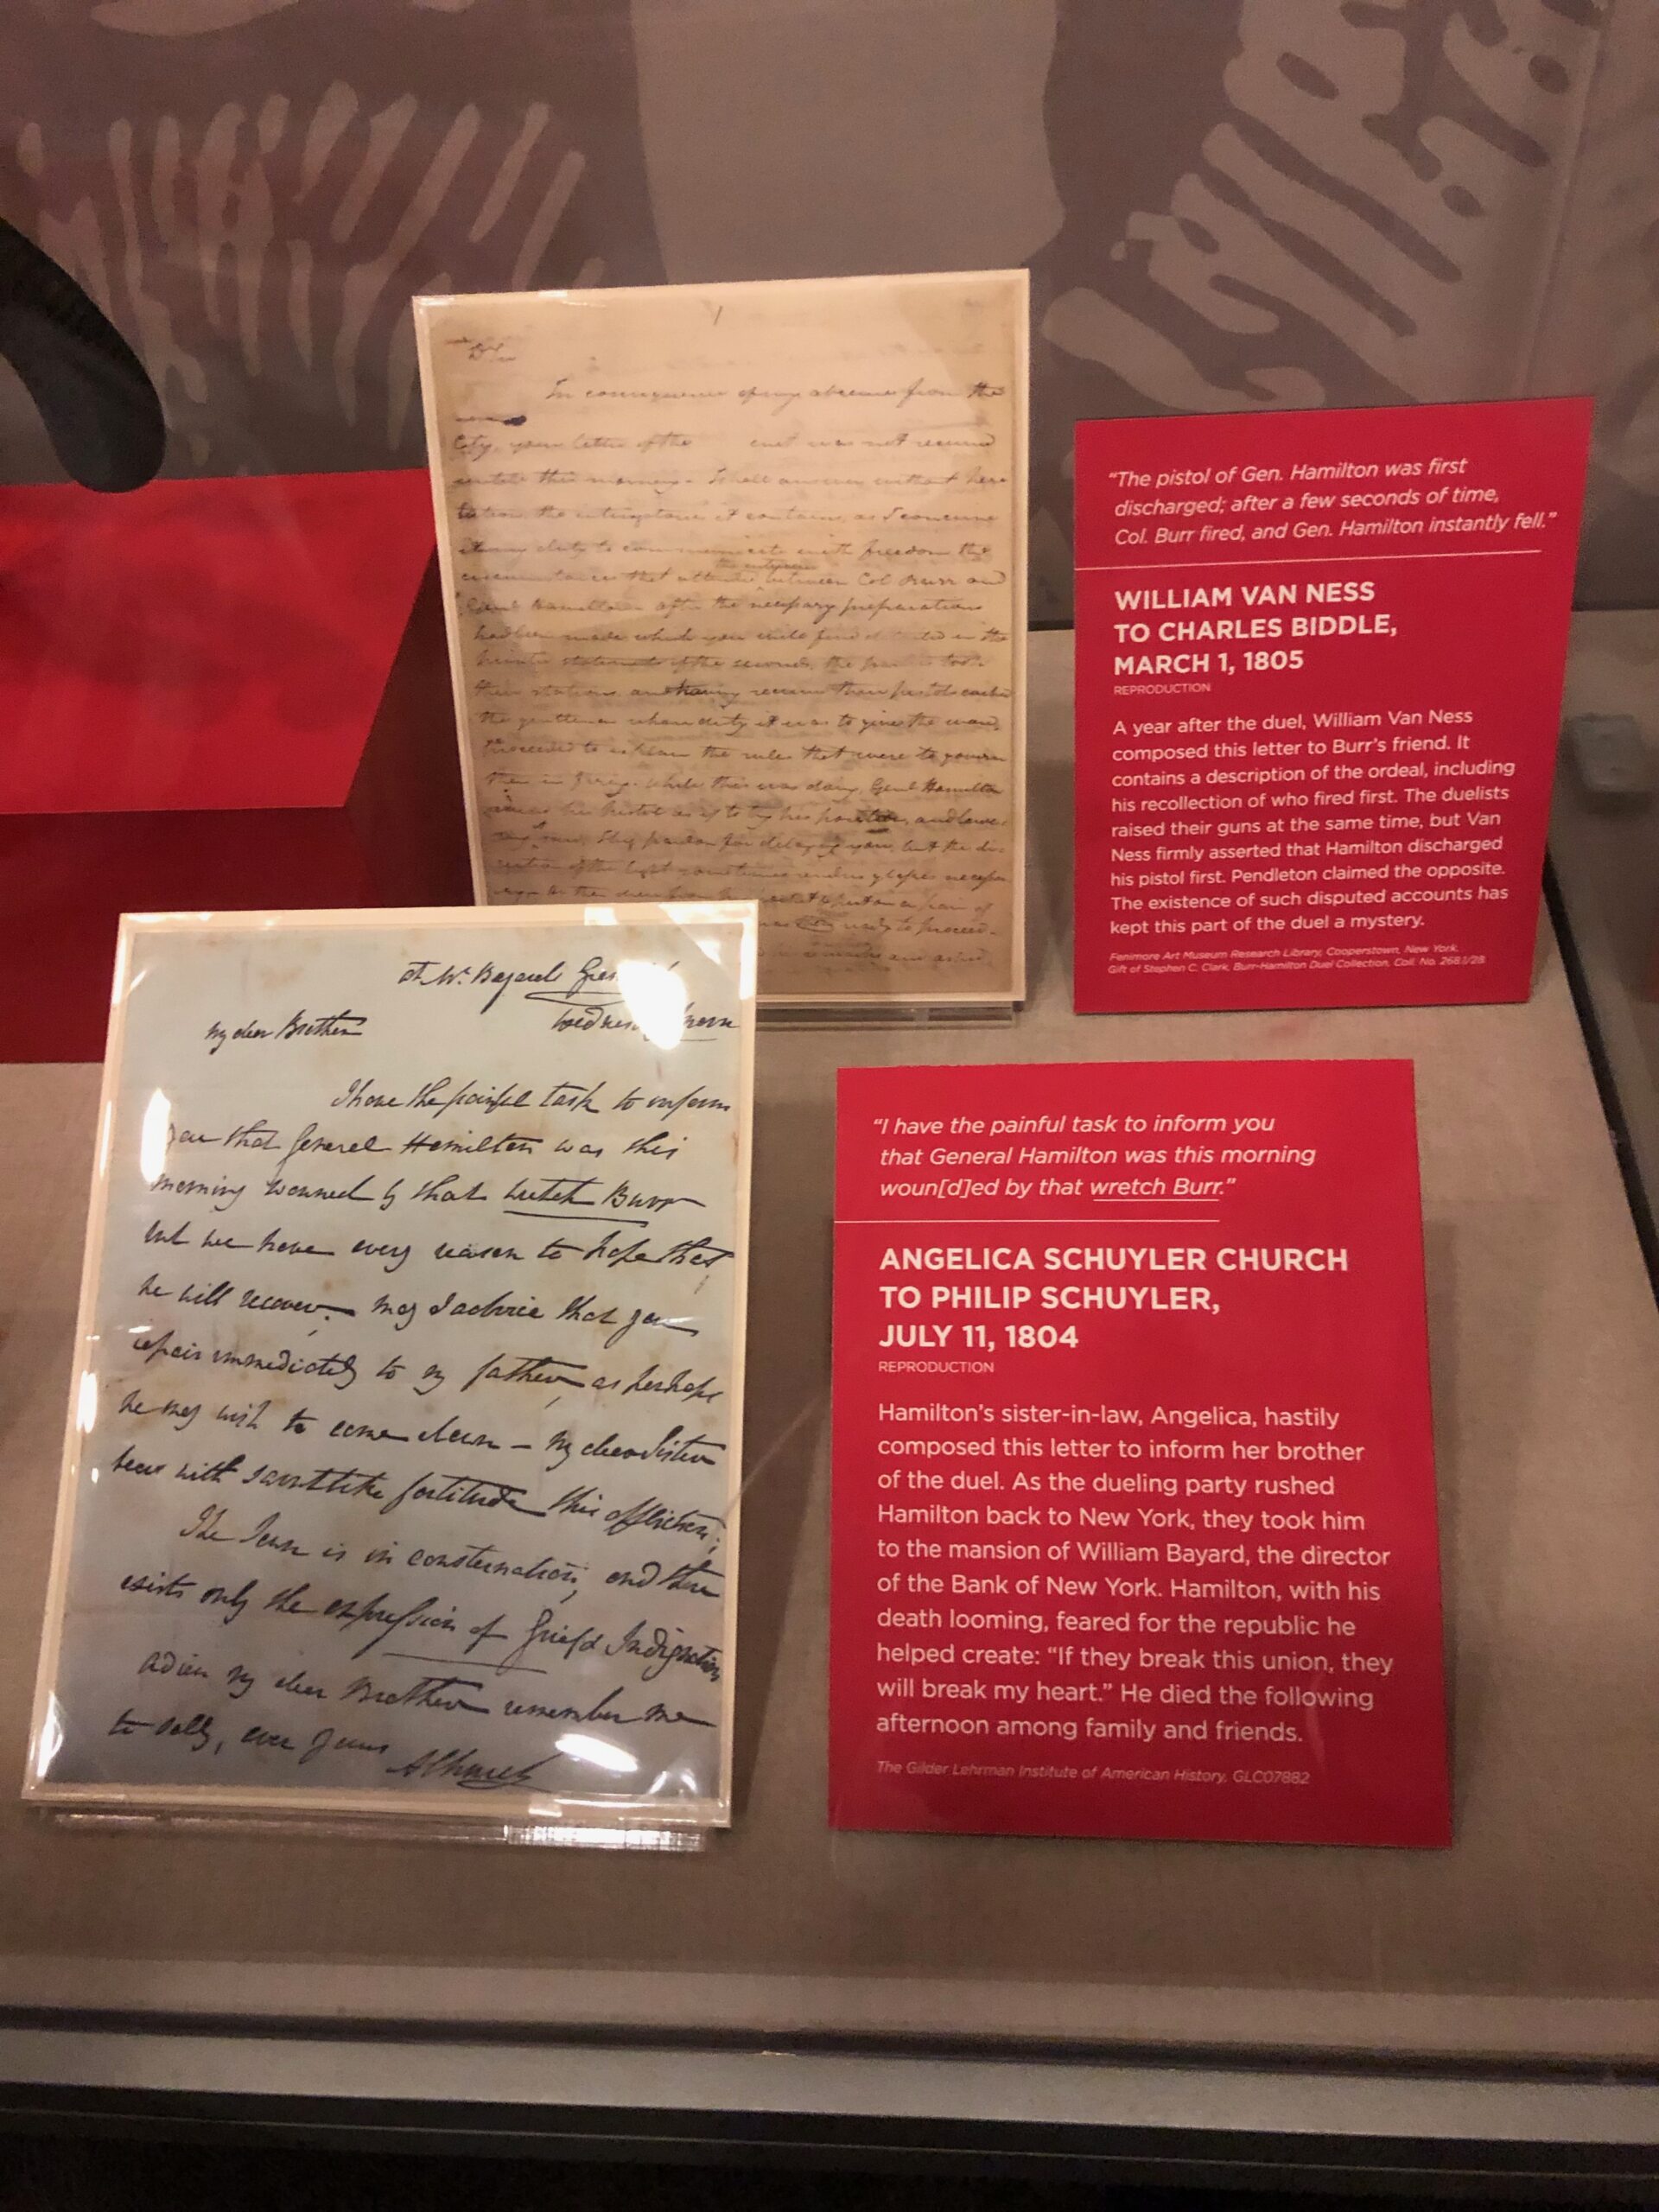 In consequence of my absence from the
City, your letter of the inst was not received
untill this morning. I shall answer without hesi
tation, the interrogatories it contains, as I conceive
it my duty to communicate with freedom the
the interview
circumstances that attended between Col Burr and
Genl Hamilton after the necessary preparations
had been made which you will find detailed in the
statement of the seconds, the parties took
their stations and having received their pistols
the gentleman whose duty it was to give the word,
proceeded to explain the rules that were to govern
them in firing. While this was doing, Genl Hamilton
raised his pistol as if to try his position, and lower
ing I beg pardon for delaying you, but the di
rection of the light sometimes renders glasses necessa
ry. a pair of
ready to proceed.
“The pistol of Gen. Hamilton was first
discharged; after a few seconds of time,
Col. Burr fired, and Gen. Hamilton instantly fell.”
WILLIAM VAN NESS
TO CHARLES BIDDLE,
MARCH 1, 1805
REPRODUCTION
A year after the duel, William Van Ness
composed this letter to Burr’s friend. It
contains a description of the ordeal, including
his recollection of who fired first. The duelists
raised their guns at the same time, but Van
Ness firmly asserted that Hamilton discharged
his pistol first. Pendleton claimed the opposite.
The existence of such disputed accounts has
kept this part of the duel a mystery.
Fenimore Art Museum Research Library, Cooperstown, New York,
Gift of Stephen C. Clark, Burr-Hamilton Duel Collection, Coll. No. 268.1/28
at Wm Bayards
My dear Brother
I have the painful task to inform
you that General Hamilton was this
morning wouned by that wretch Burr
but we have every reason to hope that
he will recover. May I advice that you
repair immediately to my father, as perhaps
he may wish to come down — My dear Sister
bears with saintlike fortitude this affliction;
The Town is in consternation, and there
exists only the expression of Grief & Indignation
adieu my dear Brother remember me
to Sally, ever yours
AChurch
“I have the painful task to inform you
that General Hamilton was this morning
woun[d]ed by that wretch Burr.”
ANGELICA SCHUYLER CHURCH
TO PHILIP SCHUYLER,
JULY 11, 1804
REPRODUCTION
Hamilton’s sister-in-law, Angelica, hastily
composed this letter to inform her brother
of the duel. As the dueling party rushed
Hamilton back to New York, they took him
to the mansion of William Bayard, the director
of the Bank of New York. Hamilton, with his
death looming, feared for the republic he
helped create: “If they break this union, they
will break my heart.” He died the following
afternoon among family and friends.
The Gilder Lehrman Institute of American History, GLC07882